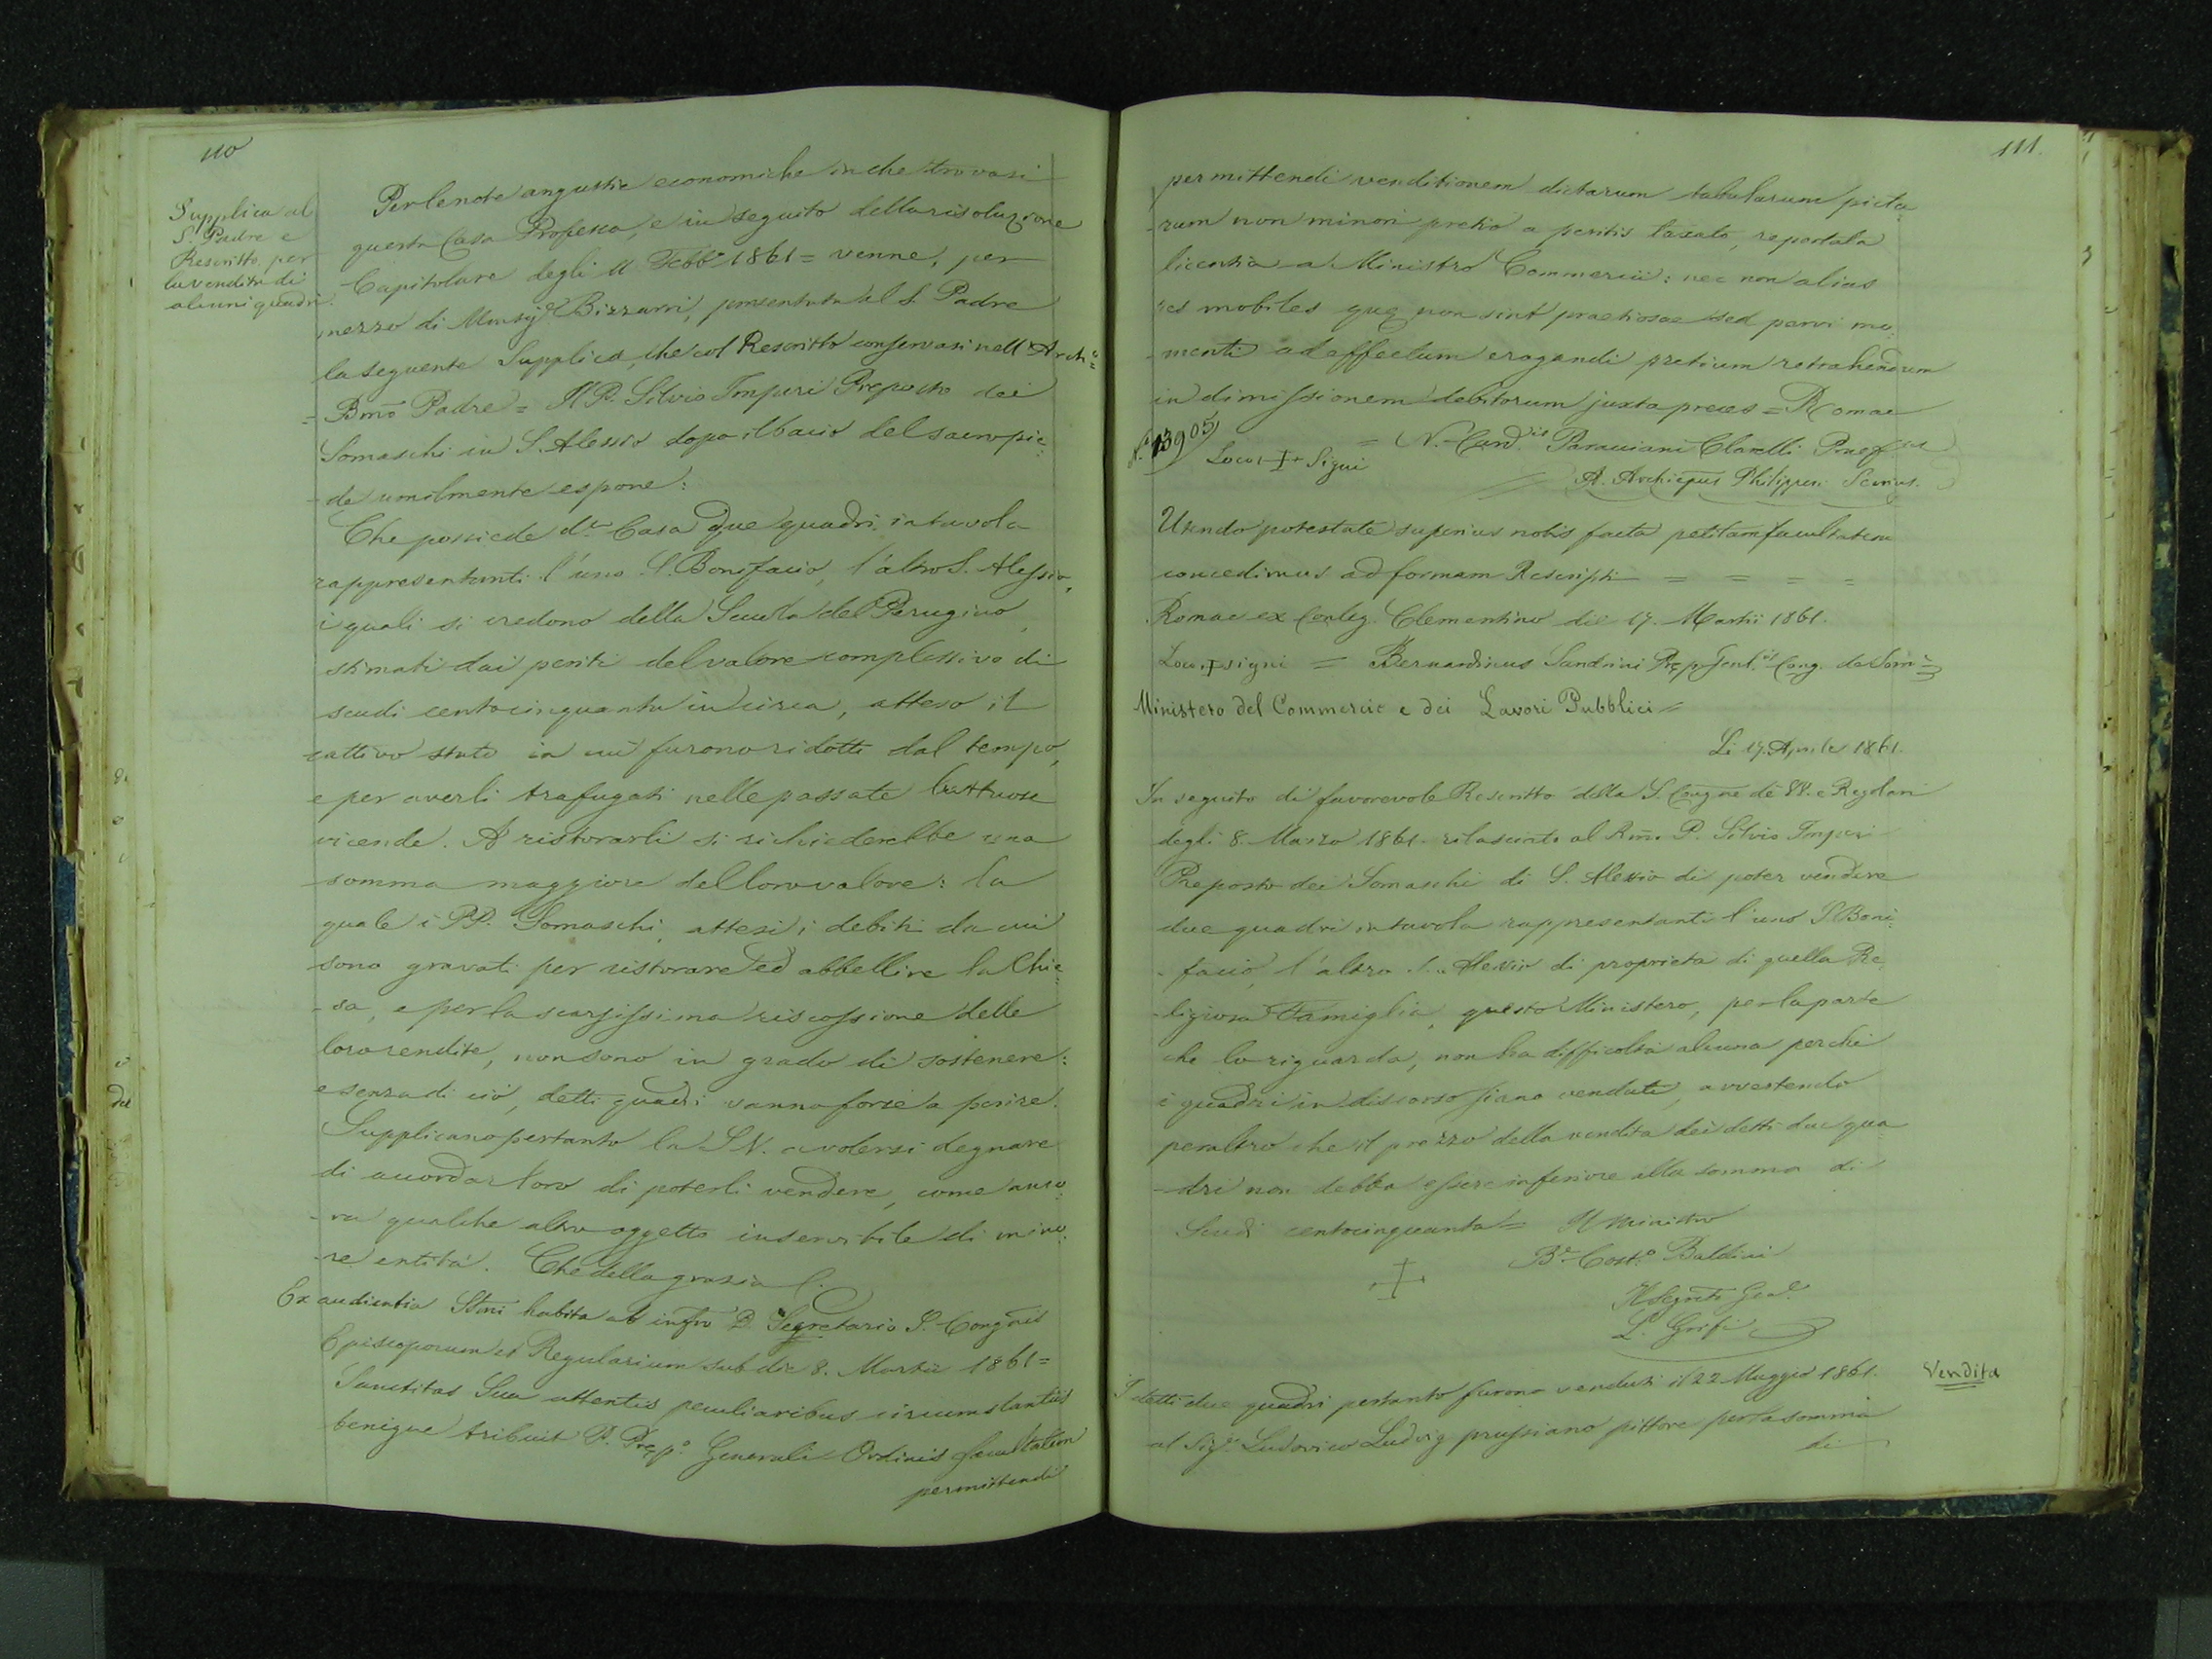 110
Supplica al
S. Padre e
Rescritto per
la vendita di
alcuni quadri.
Per le note angustie economiche in che trovasi
questa Casa Professa, e in seguito della risoluzione
Capitolare degli 11 Febb.° 1861 = venne, per
mezzo di Monsig.r Bizzarri, presentata al S. Padre
la seguente Supplica, che col Rescritto conservasi nell'Arch.°
= Bmo Padre = Il P. Silvio Imperi Preposto dei
Somaschi in S. Alessio dopo il bacio del sacro pie=
-de umilmente espone:
Che possiede d.ta Casa due quadri in tavola
rappresentanti l'uno S. Bonifacio, l'altro S. Alessio,
i quali si credono della Scuola del Perugino,
stimati dai periti del valore complessivo di
scudi centocinquanta in circa, atteso il
cattivo stato in cui furono ridotti dal tempo,
e per averli trafugati nelle passate luttuose
vicende. A ristorarli si richiederebbe una
somma maggiore del loro valore: la
quale i PP. Somaschi, attesi i debiti da cui
sono gravati per ristorare ed abbellire la Chie=
-sa, e per la scarsissima riscossione delle
loro rendite, non sono in grado di sostenere:
e senza di ciò, detti quadri vanno forse a perire.
Supplicano pertanto la S.V. a volersi degnare
di accordar loro di poterli vendere, come anco=
-ra qualche altro oggetto inservibile di mino=
-re entità. Che della grazia
Ex audientia SSmi habita ab infro D. Segretario S. Congnis
Episcoporum et Regularium sub die 8. Martii 1861=
Sanctitas Sua attentis peculiaribus circumstantiis
benigne tribuit P. Prep.° Generali Ordinis facultatem
permittendi
111.
permittendi venditionem dictarum tabularum picta=
-rum non minori pretio a peritis taxato, reportata
licentia a Ministro Commercii: nec non alias
res mobiles quę non sint praetiosae sed parvi mo=
-menti ad effectum erogandi pretium retrahendum
in dimissionem debitorum juxta preces = Romae
N.° 13905
= N. Card.lis Paracciani Clarelli Praef.us
Locus + Signi
A. Archiepus Philippen. Scrius.
Utendo potestate superius nobis facta petitam facultatem
concedimus ad formam Rescripti = = = =
Romae ex Colleg. Clementino die 17. Martii 1861.
Loco + signi = Bernardinus Sandrini Prep. Genl.is Cong. de Som.a
Ministero del Commercio e dei Lavori Pubblici =
Li 17. Aprile 1861.
In seguito di favorevole Rescritto della S. Congne de' VV. e Regolari
degli 8. Marzo 1861. rilasciato al Rmo P. Silvio Imperi
Preposto dei Somaschi di S. Alessio di poter vendere
due quadri in tavola rappresentanti l'uno S. Boni=
-facio, l'altro S. Alessio di proprietà di quella Re=
-ligiosa Famiglia, questo Ministero, per la parte
che lo riguarda, non ha difficoltà alcuna perchè
i quadri in discorso siano venduti, avvertendo
peraltro che il prezzo della vendita dei detti due qua
-dri non debba essere inferiore alla somma di
Scudi centocinquanta = Il Ministro
B.e Cost.° Baldini
+
Il Segrio Gle.
L. Grifi
Vendita
I detti due quadri pertanto furono venduti il 22 Maggio 1861.
al Sig.r Ludovico Ludvig prussiano pittore per la somma
di